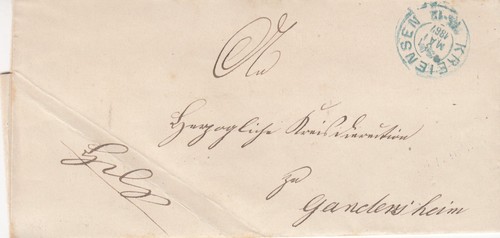 An
Herzogliche Kreisdirection
zu
Gandersheim
KREIENSEN
MAI
1867